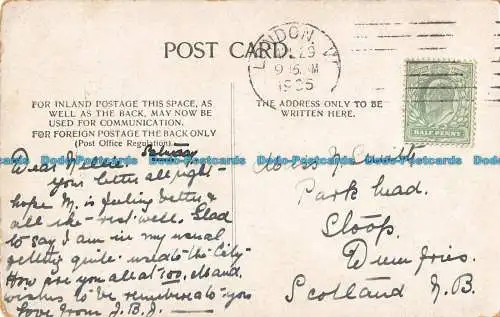 POST CARD.
LONDON, W
JL 29
9 15 AM
1905
HALF PENNY
FOR INLAND POSTAGE THIS SPACE, AS
WELL AS THE BACK, MAY NOW BE
USED FOR COMMUNICATION.
FOR FOREIGN POSTAGE THE BACK ONLY
(Post Office Regulation).
THE ADDRESS ONLY TO BE
WRITTEN HERE.
Saturday
Dear Nellie
your letter all right -
hope M. is feeling better &
all the rest well. Glad
to say I am in my usual
getting quite used to the City
How are you all at and
wishes to be remembered to you
Love from J.B.J.
Miss N
Park head.
Sloop.
Dumfries.
Scotland N.B.
Dodo-Postcards Dodo-Postcards Dodo-Postcards Dodo-Postcards